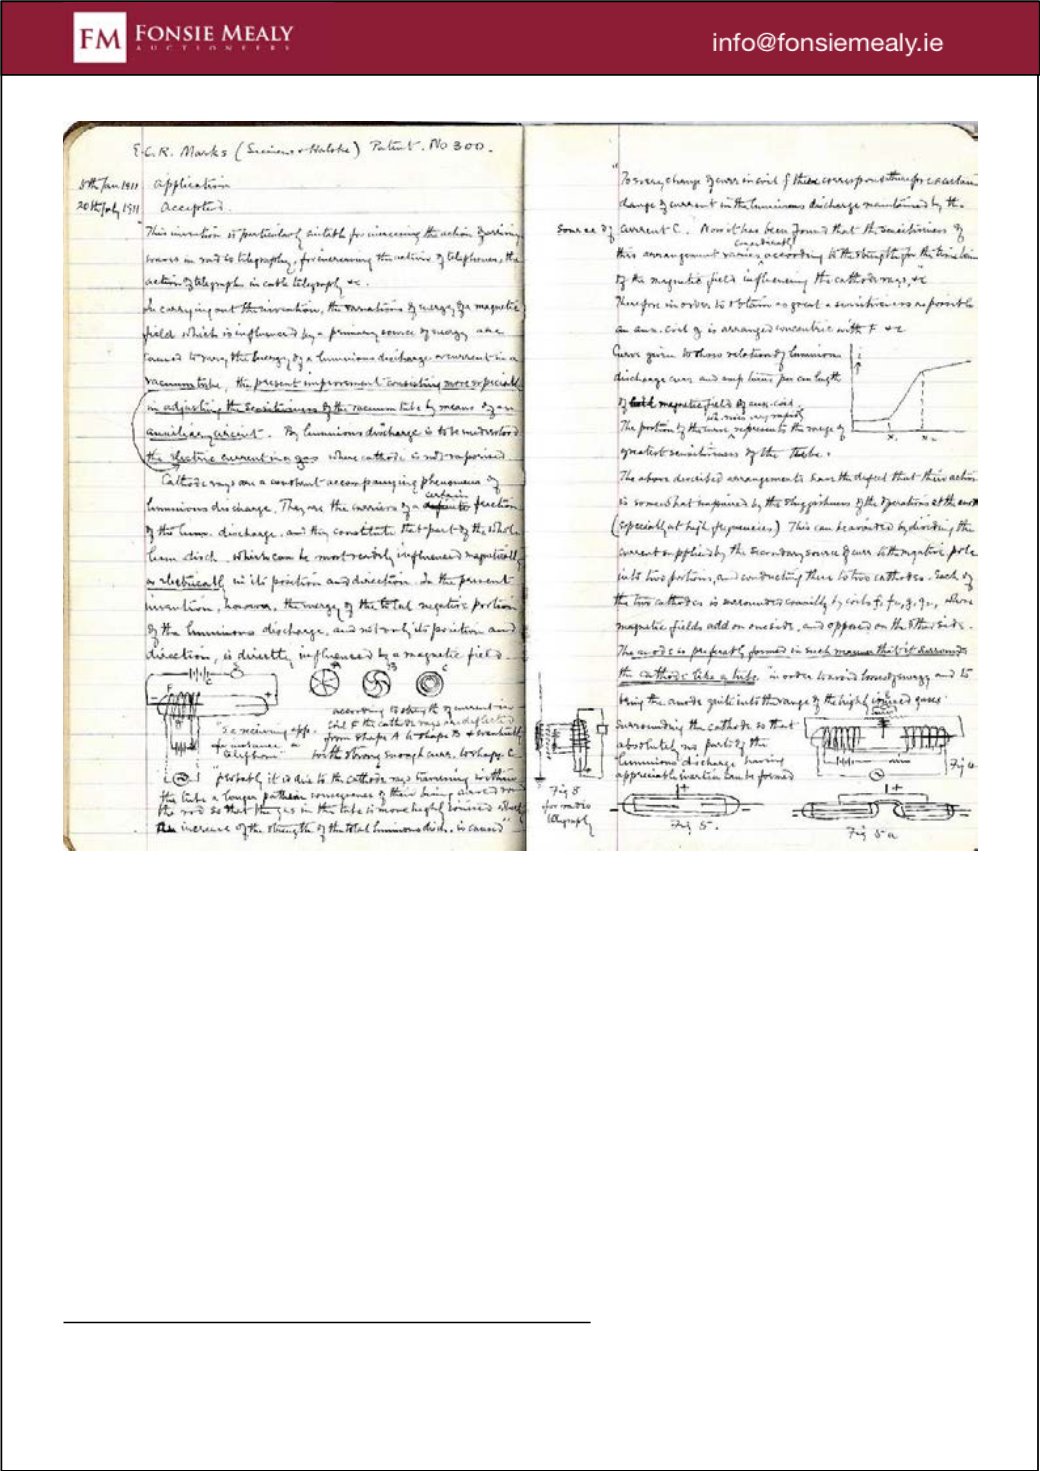 FM
FONSIE MEALY
AUCTIONEERS
info@fonsiemealy.ie
E.C.R. Marks (Siemens & Halske) Patent. No 300.
5th Jan 1911 Application
20th July 1911 Accepted.
"This invention is particularly suitable for increasing the action of arriving
waves in radio telegraphy, for increasing the action of telephones, the
action of telegraphs in cable telegraphy &c.
In carrying out the invention, the variations of energy of a magnetic
field which is influenced by a primary source of energy are
caused to vary the energy of a luminous discharge or current in a
vacuum tube, the present improvement consisting more especially
in adjusting the sensitiveness of the vacuum tube by means of an
auxiliary circuit". By luminous discharge is to be understood
the electric current in a gas where cathode is not vaporised
Cathode rays are a constant accompanying phenomena of
certain
luminous discharge. They are the carriers of a definite fraction
of the lumn. discharge, and they constitute that part of the whole
lumn disch. which can be most readily influenced magnetically
or electrically in its position and direction. In the present
invention, however, the energy of the total negative portion
of the luminous discharge, and not only its position and
direction, is directly influenced by a magnetic field.
A B C
F
according to strength of current in
coil F the cathode rays are deflected
from shape A to shape B & eventually
with strong enough curr. to shape C
"S a receiving app.
for instance a
telephone"
"probably it is due to the cathode rays traversing within
the tube a longer path in consequence of their being
the rod so that the gas in the tube is more highly ionised &
the increase of the strength of the total luminous disch. is caused"
"To every change of curr in coil f there corresponds therefore a certain
change of current in the luminous discharge maintained by the
source of current C. Now it has been found that the sensitiveness of
considerably
this arrangement varies according to the strength for the time being
of the magnetic field influencing the cathode rays, &c
Therefore in order to obtain as great a sensitiveness as possible
an aux. coil g is arranged concentric with F &c
Curve given to show relation of luminous
discharge curr. and amp turns per cm length
of magnetic field of aux. coil.
which rises very rapidly
The portion of the curve represents the range of
greatest sensitiveness of the tube.
i
X1 X2
The above described arrangements have the defect that their action
is somewhat impaired by the sluggishness of the operations at the
(especially at high frequencies) This can be avoided by dividing the
current supplied by the secondary source of curr to the negative pole
into two portions, and conducting these to two cathodes. Each of
the two cathodes is surrounded by coils f, f2, g, g2, whose
magnetic fields add on one side, and oppose on the other side.
The anode is preferably formed in such manner that it surrounds
the cathode like a tube, "in order to avoid loss of energy and to
bring the anode quite into the range of the highly ionised gases
surrounding the cathode so that
absolutely no part of the
luminous discharge having
appreciable inertia can be formed
Fig 3
for radio
telegraphy
Fig 4
Fig 5.
Fig 5a